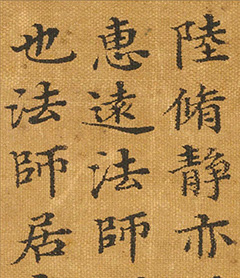 陸脩靜亦
惠遠法師
也法師居